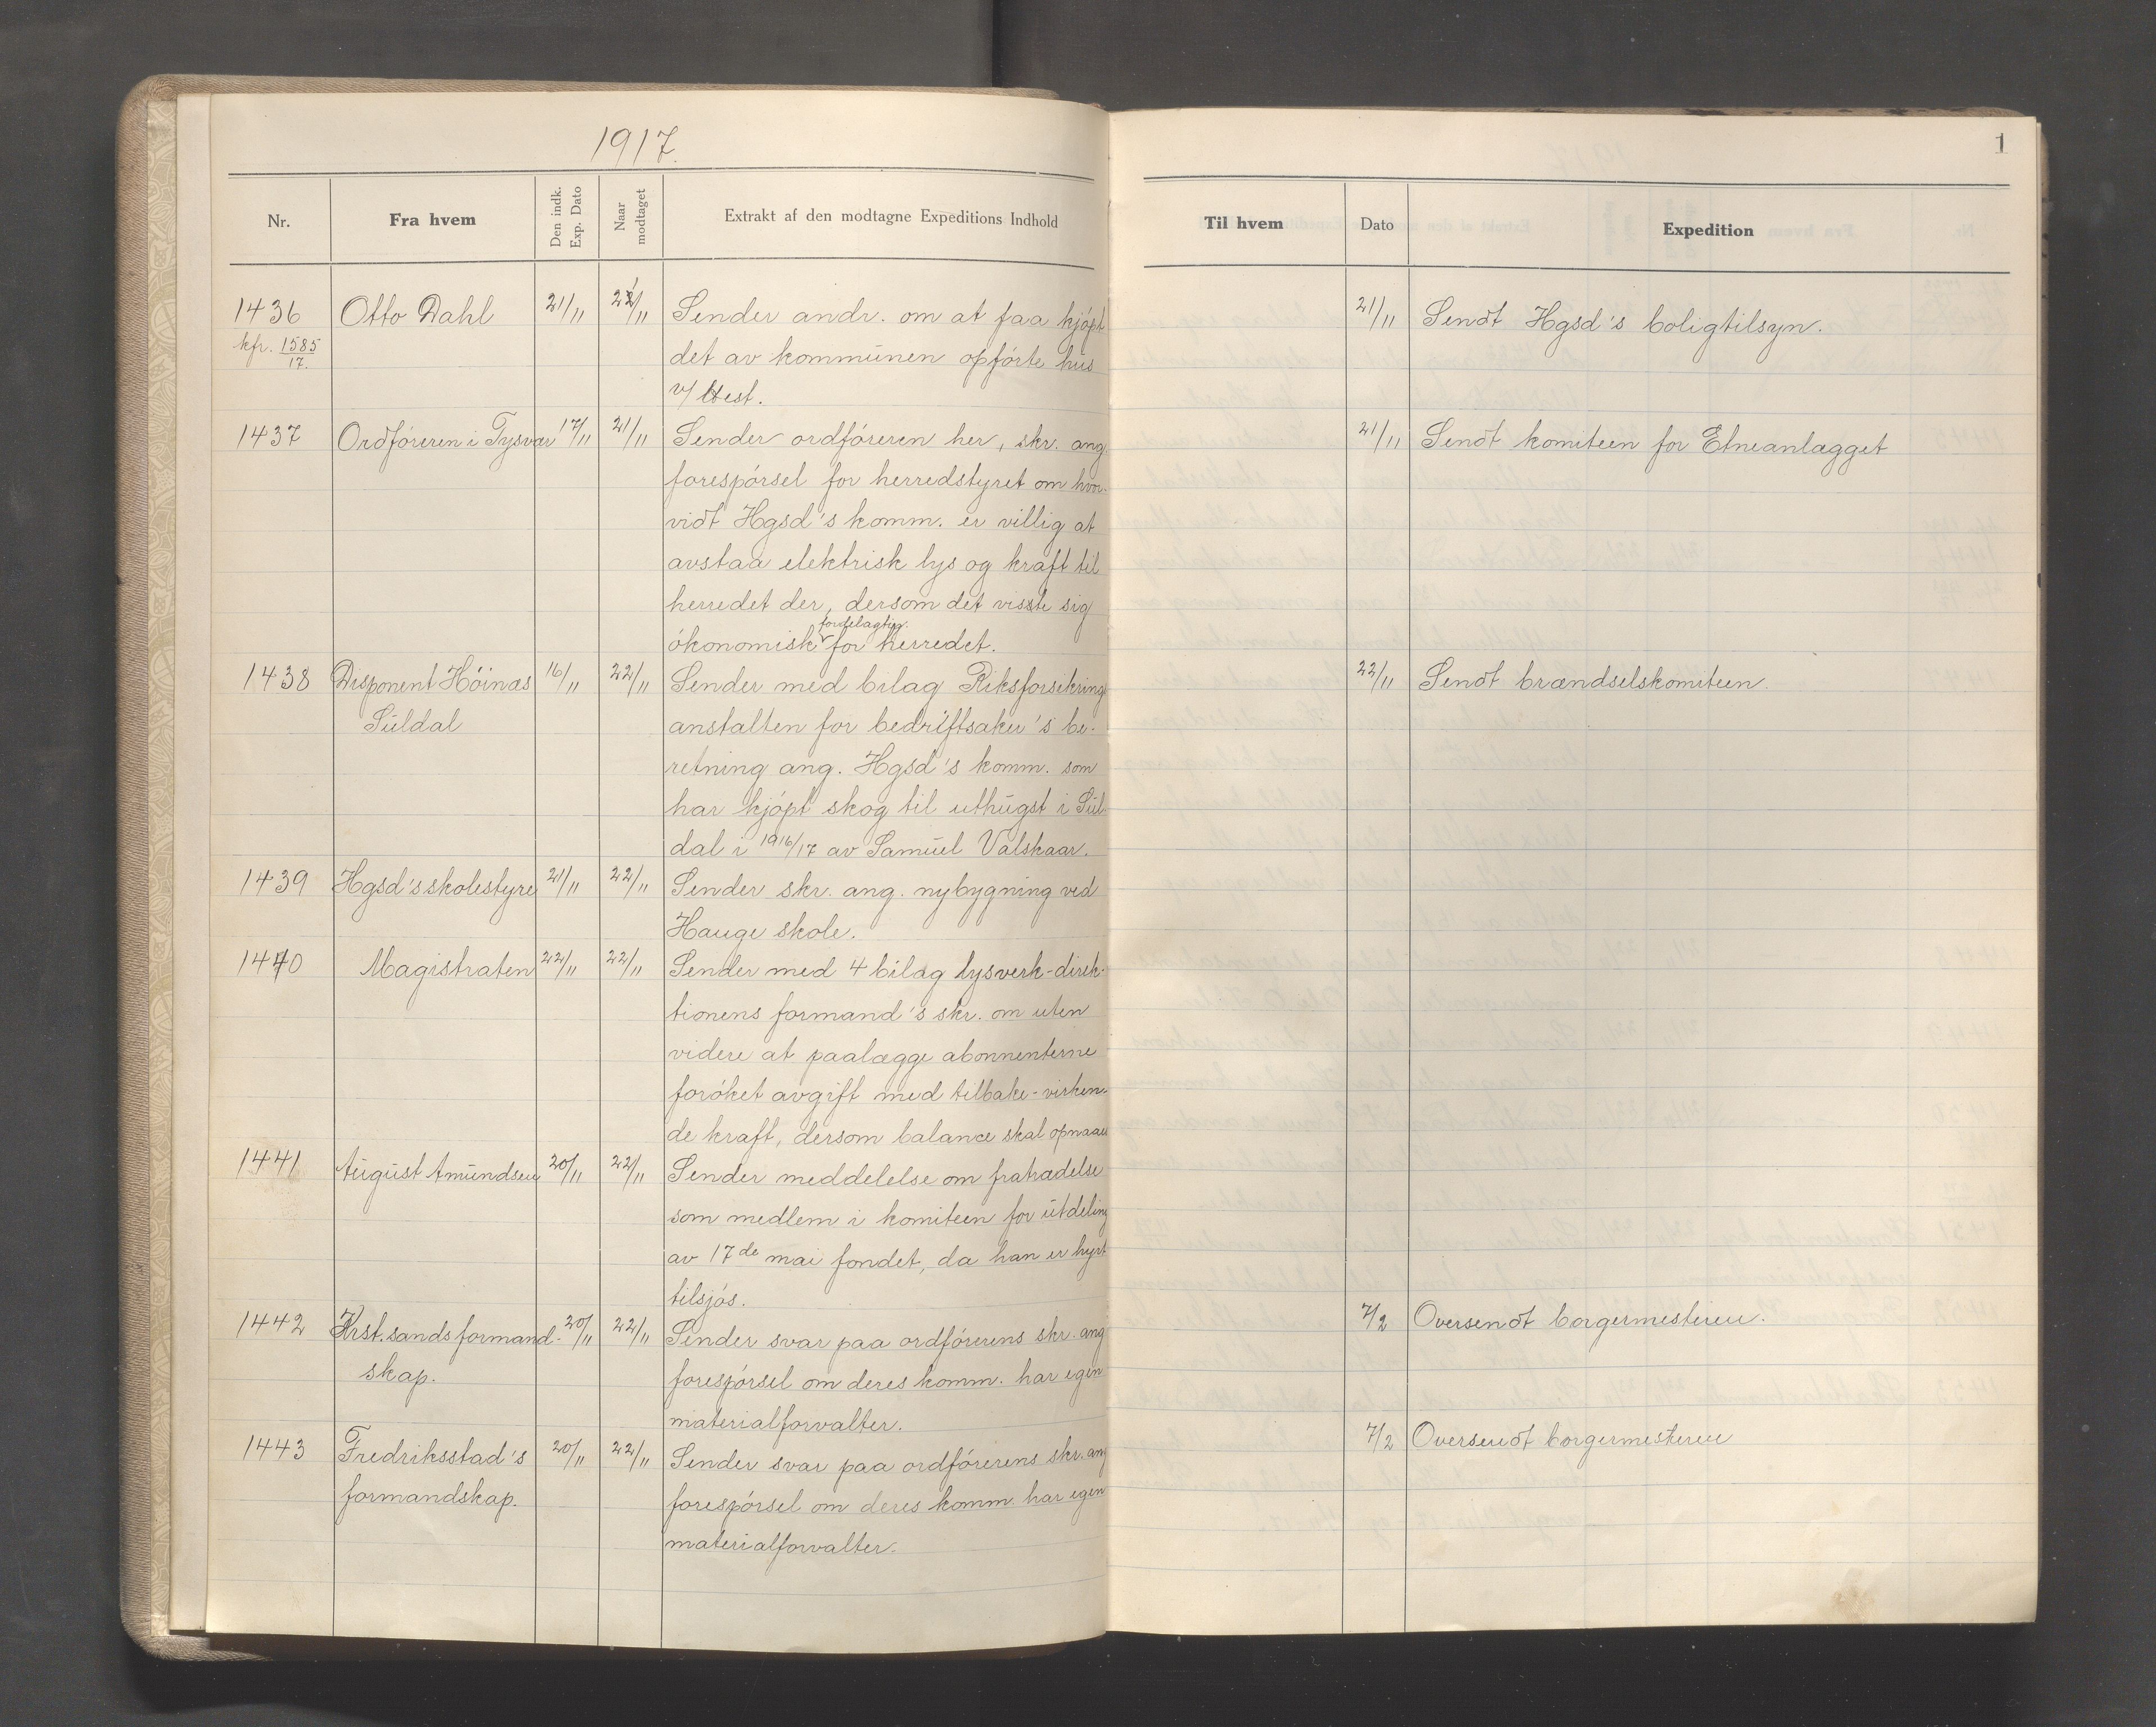 1917.
Nr.
Fra hvem
Den indk. Exp. Dato
Naar modtaget
Extrakt af den modtagne Expeditions Indhold
1436
kfr. 1585/17.
Otto Dahl
21/11
Sender andr. om at faa kjøpt
det av kommunen opførte hus
v/
1437
Ordføreren i Tysvær
17/11
21/11
Sender ordføreren her, skr. ang
forespørsel for herredstyret om hvor-
vidt Hgsd's komm. er villig at
avstaa elektrisk lys og kraft til
herredet der, dersom det visste sig
økonomisk fordelagtig for herredet.
1438
Disponent Höinæs
Suldal
16/11
22/11
Sender med bilag Riksforsikrings
anstalten for bedriftsaker's be-
retning ang. Hgsd's komm. som
har kjøpt skog til uthugst i Sul-
dal i 1916/17 av Samuel Valskaar.
1439
Hgsd's skolestyre
21/11
22/11
Sender skr. ang. nybygning ved
Hauge skole.
1440
Magistraten
22/11
22/11
Sender med 4 bilag lysverk-direk-
tionens formand's skr. om uten
videre at paalægge abonnenterne
forøket avgift med tilbake-virken-
de kraft, dersom balance skal opnaaes
1441
August Amundsen
20/11
22/11
Sender meddelelse om fratrædelse
som medlem i komiteen for utdeling
av 17de mai fondet, da han er hyrt
tilsjøs.
1442
Krst.sands formand-
skap.
20/11
22/11
Sender svar paa ordførerens skr. ang
forespørsel om deres komm. har egen
materialforvalter.
1443
Fredriksstad's
formandskap.
20/11
22/11
Sender svar paa ordførerens skr. ang
forespørsel om deres komm. har egen
materialforvalter.
1
Til hvem
Dato
Expedition
21/11
Sendt Hgsd's boligtilsyn.
21/11
Sendt komiteen for Etneanlægget
22/11
Sendt brændselskomiteen.
7/2
Oversendt borgermesteren.
7/2
Oversendt borgermesteren